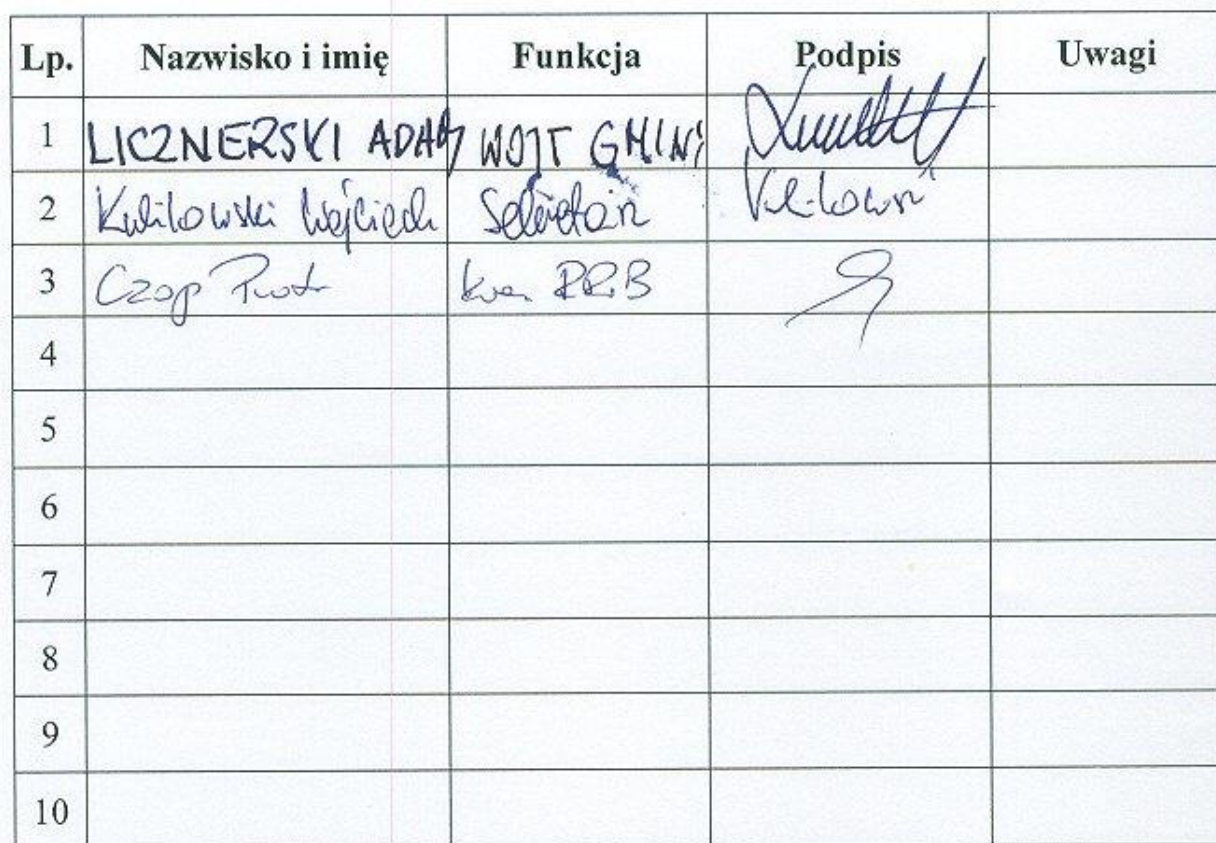 Lp. Nazwisko i imię Funkcja Podpis Uwagi
1 LICZNERSKI ADAM WOJT GMINY
2 Kulikowski Wojciech Sekretarz
3 Czop Piotr
4
5
6
7
8
9
10